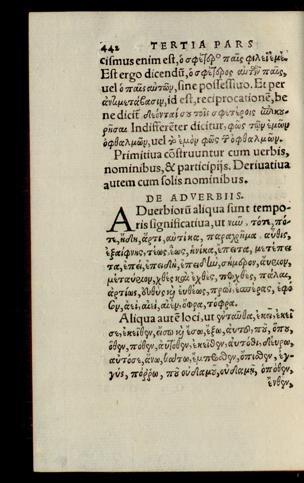 442 TERTIA PARS
cismus enim est, ὁ σφέτερος παῖς φιλεῖ ἐμέ.
Est ergo dicendũ, ὁ σφέτερος αὐτῶν παῖς,
uel ὁ παῖς αὐτῶν, sine possessiuo. Et per
id est, reciprocationẽ, be
ne dicit
Indifferẽter dicitur, φῶς τῶν ἐμῶν
ὀφθαλμῶν, uel
Primitiua cõstruuntur cum uerbis,
nominibus, & participijs. Deriuatiua
autem cum solis nominibus.
DE ADVERBIIS.
ADuerbiorũ aliqua sunt tempo-
ris significatiua, ut νῦν, τότε, πό-
τε, ἤδη, ἄρτι, αὐτίκα, παραχρῆμα, αὖθις,
ἐξαίφνης, τέως, ἕως, ἡνίκα, ἔπειτα, μετέπει
τα, ἐπεὶ, ἐπειδὴ, σήμερον, αὔριον,
μεταύριον, χθὲς καὶ ἐχθὲς, πάλαι,
ἀρτίως, εὐθὺς καὶ εὐθέως, πρωῒ, ἑσπέρας,
ἀεὶ, ὄφρα, τόφρα.
Aliqua autẽ loci, ut ἐνταῦθα, ἐκεῖ, ἐκεῖ
σε, ἐκεῖθεν, εἴσω καὶ ἔσω, ἔξω, αὐτοῦ, ποῦ, ὅπου,
ὅθεν, πόθεν, ἐκεῖθεν, αὐτόθι, δεῦρο,
αὐτόσε, ἄνω, κάτω, ἔμπροσθεν, ὄπισθεν, ἐγ-
γὺς, πόρρω, οὐδαμοῦ, οὐδαμῆ, ὁπόθεν,
ἔνθεν,